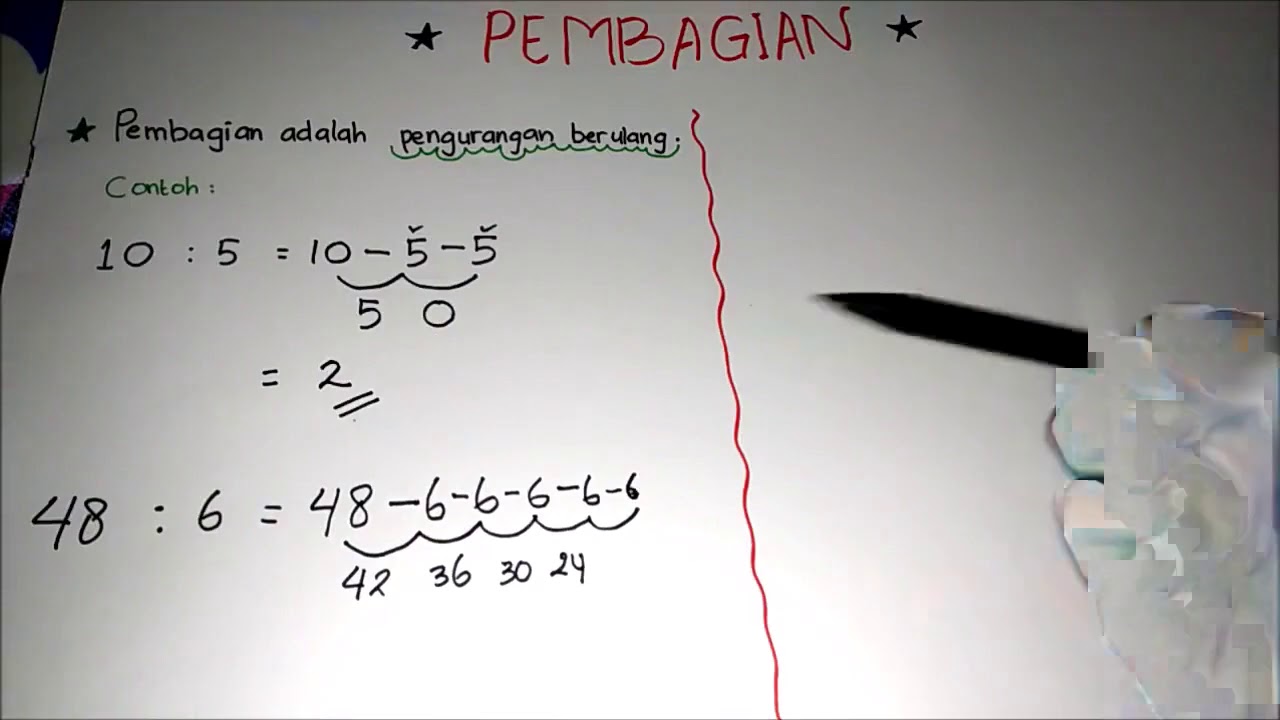 ★ PEMBAGIAN ★
★ Pembagian adalah pengurangan berulang.
Contoh :
10 : 5 = 10 - 5 - 5
5 0
= 2
48 : 6 = 48 - 6 - 6 - 6 - 6 - 6
42 36 30 24